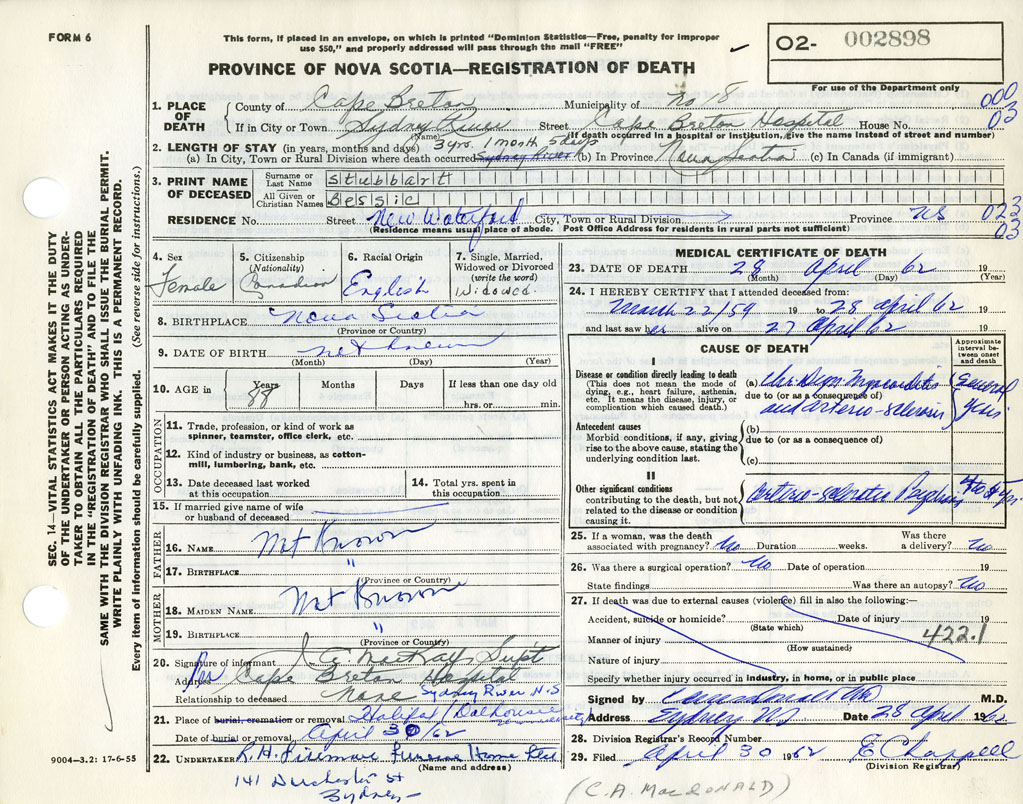 FORM 6
This form, if placed in an envelope, on which is printed "Dominion Statistics—Free, penalty for improper
use $50," and properly addressed will pass through the mail "FREE"
O2- 002898
PROVINCE OF NOVA SCOTIA—REGISTRATION OF DEATH
For use of the Department only
000
03
1. PLACE OF DEATH
County of Cape Breton Municipality of No 18
If in City or Town Sydney River Street Cape Breton Hospital House No.
(Name) (If death occurred in a hospital or institution, give the name instead of street and number)
2. LENGTH OF STAY (in years, months and days) 3 yrs. 1 month 5 days
(a) In City, Town or Rural Division where death occurred Sydney River (b) In Province Nova Scotia (c) In Canada (if immigrant)
3. PRINT NAME OF DECEASED
Surname or Last Name Stubbart
All Given or Christian Names Bessie
RESIDENCE No. Street New Waterford City, Town or Rural Division Province NS 023
(Residence means usual place of abode. Post Office Address for residents in rural parts not sufficient) 03
4. Sex Female
5. Citizenship (Nationality) Canadian
6. Racial Origin English
7. Single, Married, Widowed or Divorced (write the word) Widowed.
8. BIRTHPLACE Nova Scotia
(Province or Country)
9. DATE OF BIRTH not known
(Month) (Day) (Year)
10. AGE in Years 88 Months Days If less than one day old
hrs. or min.
OCCUPATION
11. Trade, profession, or kind of work as
spinner, teamster, office clerk, etc.
12. Kind of industry or business, as cotton-
mill, lumbering, bank, etc.
13. Date deceased last worked
at this occupation
14. Total yrs. spent in
this occupation
15. If married give name of wife
or husband of deceased
FATHER
16. NAME Not Known
17. BIRTHPLACE "
(Province or Country)
MOTHER
18. MAIDEN NAME Not Known
19. BIRTHPLACE "
(Province or Country)
20. Signature of informant MacKay Supt
Per
Address Cape Breton Hospital
Relationship to deceased None Sydney River N.S
21. Place of burial, cremation or removal Halifax (Dalhousie
Date of burial or removal April 30/62
22. UNDERTAKER Funeral Home
(Name and address)
141 Dorchester St
Sydney
MEDICAL CERTIFICATE OF DEATH
23. DATE OF DEATH 28 April 62 19
(Month) (Day) (Year)
24. I HEREBY CERTIFY that I attended deceased from:
March 22/59 19 to 28 April 62 19
and last saw her alive on 27 April 62 19
CAUSE OF DEATH
Approximate interval between onset and death
I
Disease or condition directly leading to death
(This does not mean the mode of
dying, e.g., heart failure, asthenia,
etc. It means the disease, injury, or
complication which caused death.)
(a) Myocarditis
due to (or as a consequence of)
and arterio-sclerosis
several
yrs.
Antecedent causes
Morbid conditions, if any, giving
rise to the above cause, stating the
underlying condition last.
(b)
due to (or as a consequence of)
(c)
II
Other significant conditions
contributing to the death, but not
related to the disease or condition
causing it.
Arterio-sclerotic Psychosis
25. If a woman, was the death
associated with pregnancy? No Duration weeks. Was there
a delivery? No
26. Was there a surgical operation? No Date of operation 19
State findings Was there an autopsy? No
27. If death was due to external causes (violence) fill in also the following:—
Accident, suicide or homicide? Date of injury 19
(State which)
Manner of injury 422.1
(How sustained)
Nature of injury
Specify whether injury occurred in industry, in home, or in public place
Signed by M.D.
Address Sydney NS Date 28 April 1962
28. Division Registrar's Record Number
29. Filed April 30 1962 E Chappell
(Division Registrar)
(C.A. MacDONALD)
SEC. 14—VITAL STATISTICS ACT MAKES IT THE DUTY
OF THE UNDERTAKER OR PERSON ACTING AS UNDER-
TAKER TO OBTAIN ALL THE PARTICULARS REQUIRED
IN THE "REGISTRATION OF DEATH" AND TO FILE THE
SAME WITH THE DIVISION REGISTRAR WHO SHALL ISSUE THE BURIAL PERMIT.
WRITE PLAINLY WITH UNFADING INK. THIS IS A PERMANENT RECORD.
Every item of information should be carefully supplied. (See reverse side for instructions.)
9004—3.2: 17-6-55